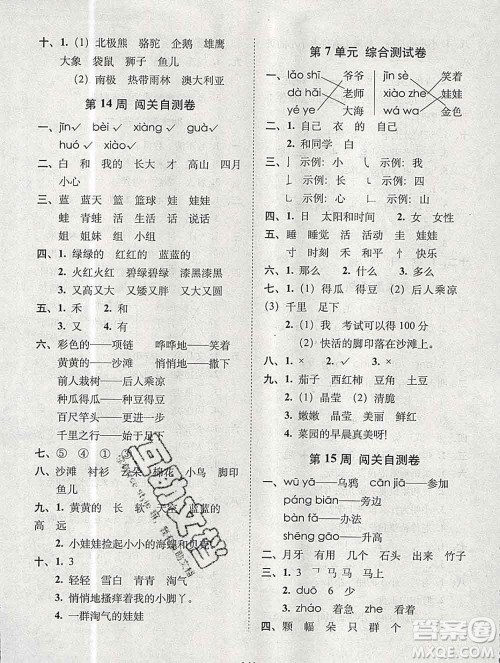 十、1.（1）北极熊 骆驼 企鹅 雄鹰
大象 袋鼠 狮子 鱼儿
（2）南极 热带雨林 澳大利亚
第 14 周 闯关自测卷
一、jīn✓ bèi✓ xiàng✓ guà✓
huó✓ xiào✓
二、白 和 我的 长大 才 高山 四月
小心
三、蓝 蓝天 篮 篮球 娃 娃娃
蛙 青蛙 活 生活 话 说话
姐 姐妹 组 小组
四、1. 绿绿的 红红的 蓝蓝的
2. 火红火红 碧绿碧绿 漆黑漆黑
3. 又高又大 又矮又小 又大又圆
五、1. 禾 2. 和
六、彩色的——项链 哗哗地——笑着
黄黄的——沙滩 悄悄地——撒下
前人栽树——后人乘凉
种瓜得瓜——种豆得豆
百尺竿头——更进一步
千里之行——始于足下
七、⑤ ④ ①
八、沙滩 衬衫 云朵 棉花 小鸟 脚印
鱼儿
九、1. 黄黄的 长 软 天 座 蓝蓝的
高 远
2. 小娃娃捡起小小的海螺和贝壳
十、1. 3
2. 轻轻 雪白 青青 淘气
3. 悄悄地搔痒着我的小脚丫。
4. 一群淘气的娃娃
第 7 单元 综合测试卷
一、lǎo shī 爷爷 jīn sè 笑着
dà hǎi 老师 xiào zhe 娃娃
yé ye 大海 wá wa 金色
二、1. 自己 衣 的 自己
2. 和同学 白
三、亅 示例：小 乚 示例：巴
㇀ 示例：习 亅 示例：水
四、1. 日 太阳和时间 2. 女 女性
五、睡 睡觉 活 活动 娃 娃娃
寸 时刻 行 千斤 今 今天
六、1. 着 2. 地 3. 的
七、1.（1）种豆得豆 （2）后人乘凉
（3）千里 足下
2.（1）我 考试可以得 100 分
（2）快活的脚印落在沙滩上。
八、1. × 2. ✓ 3. × 4. ×
九、1. 茄子 西红柿 豆角 土豆
2.（1）晶莹 （2）清脆
3. 嫩嫩 晶莹 青青
4. 菜园的早晨真美呀！
第 15 周 闯关自测卷
一、wū yā——乌鸦 cān jiā——参加
páng biān——旁边
bàn fǎ——办法
shēng gāo——升高
二、月牙 有关 几只 出来 开口
三、1. ㇆ 马 马 马 3
2. duǒ 6
3. zháo 着急 zhe 看着
四、颗 幅 朵 只 群 个